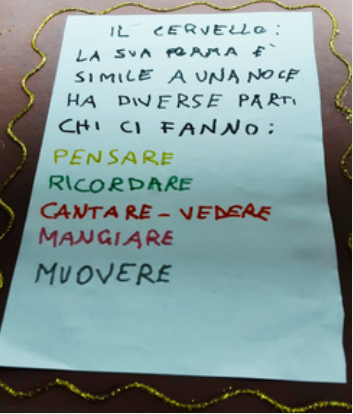 IL CERVELLO:
LA SUA FORMA E'
SIMILE A UNA NOCE
HA DIVERSE PARTI
CHI CI FANNO:
PENSARE
RICORDARE
CANTARE - VEDERE
MANGIARE
MUOVERE